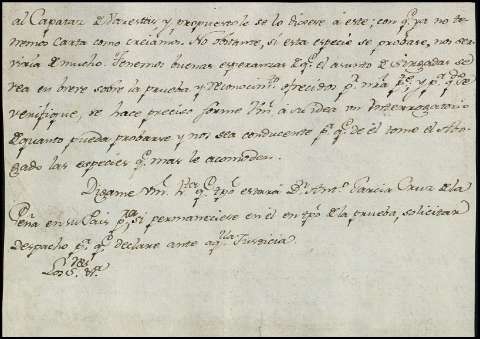 al Capataz de Marentes, y propuestole se lo diesse à este; con q.e ya no te-
nemos Carta como creiamos. No obstante, si esta especie se probase, nos ser-
viria de mucho. Tenemos buenas esperanzas de q.e el asunto de se
vea en breve sobre la prueba y Reconocim.to ofrecidos p.r nrã p.te, y p.a q.do se
verifique, se hace preciso forme Vm. à su idea un Interrogatorio
de quanto pueda probarse y nos sea conducente p.a q.e de él tome el Abo-
gado las especies q.e mas le acomoden.
Digame Vm. h.ta q.e tpõ estará D.n Ant.o Garcia Cruz de la
Peña en su Pais p.a si permaneciese en el en tpõ de la prueba, solicitar
despacho p.a q.e declare ante aq.lla Justicia.